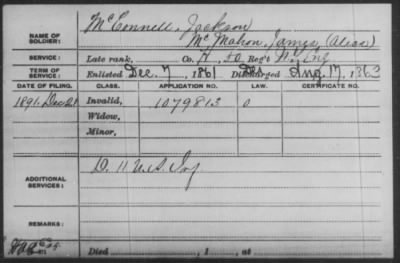 McConnell, Jackson
NAME OF SOLDIER: McMahon, James, (Alias)
SERVICE: Late rank, Co. H, 50 Reg't N.Y. Eng
TERM OF SERVICE: Enlisted Dec. 7, 1861 Discharged Aug. 17, 1863
DATE OF FILING. CLASS. APPLICATION NO. LAW. CERTIFICATE NO.
1891. Dec 21 Invalid, 1079813 0
Widow,
Minor,
ADDITIONAL SERVICES: D. 11 U.S. Inf
REMARKS:
Died , 1 , at